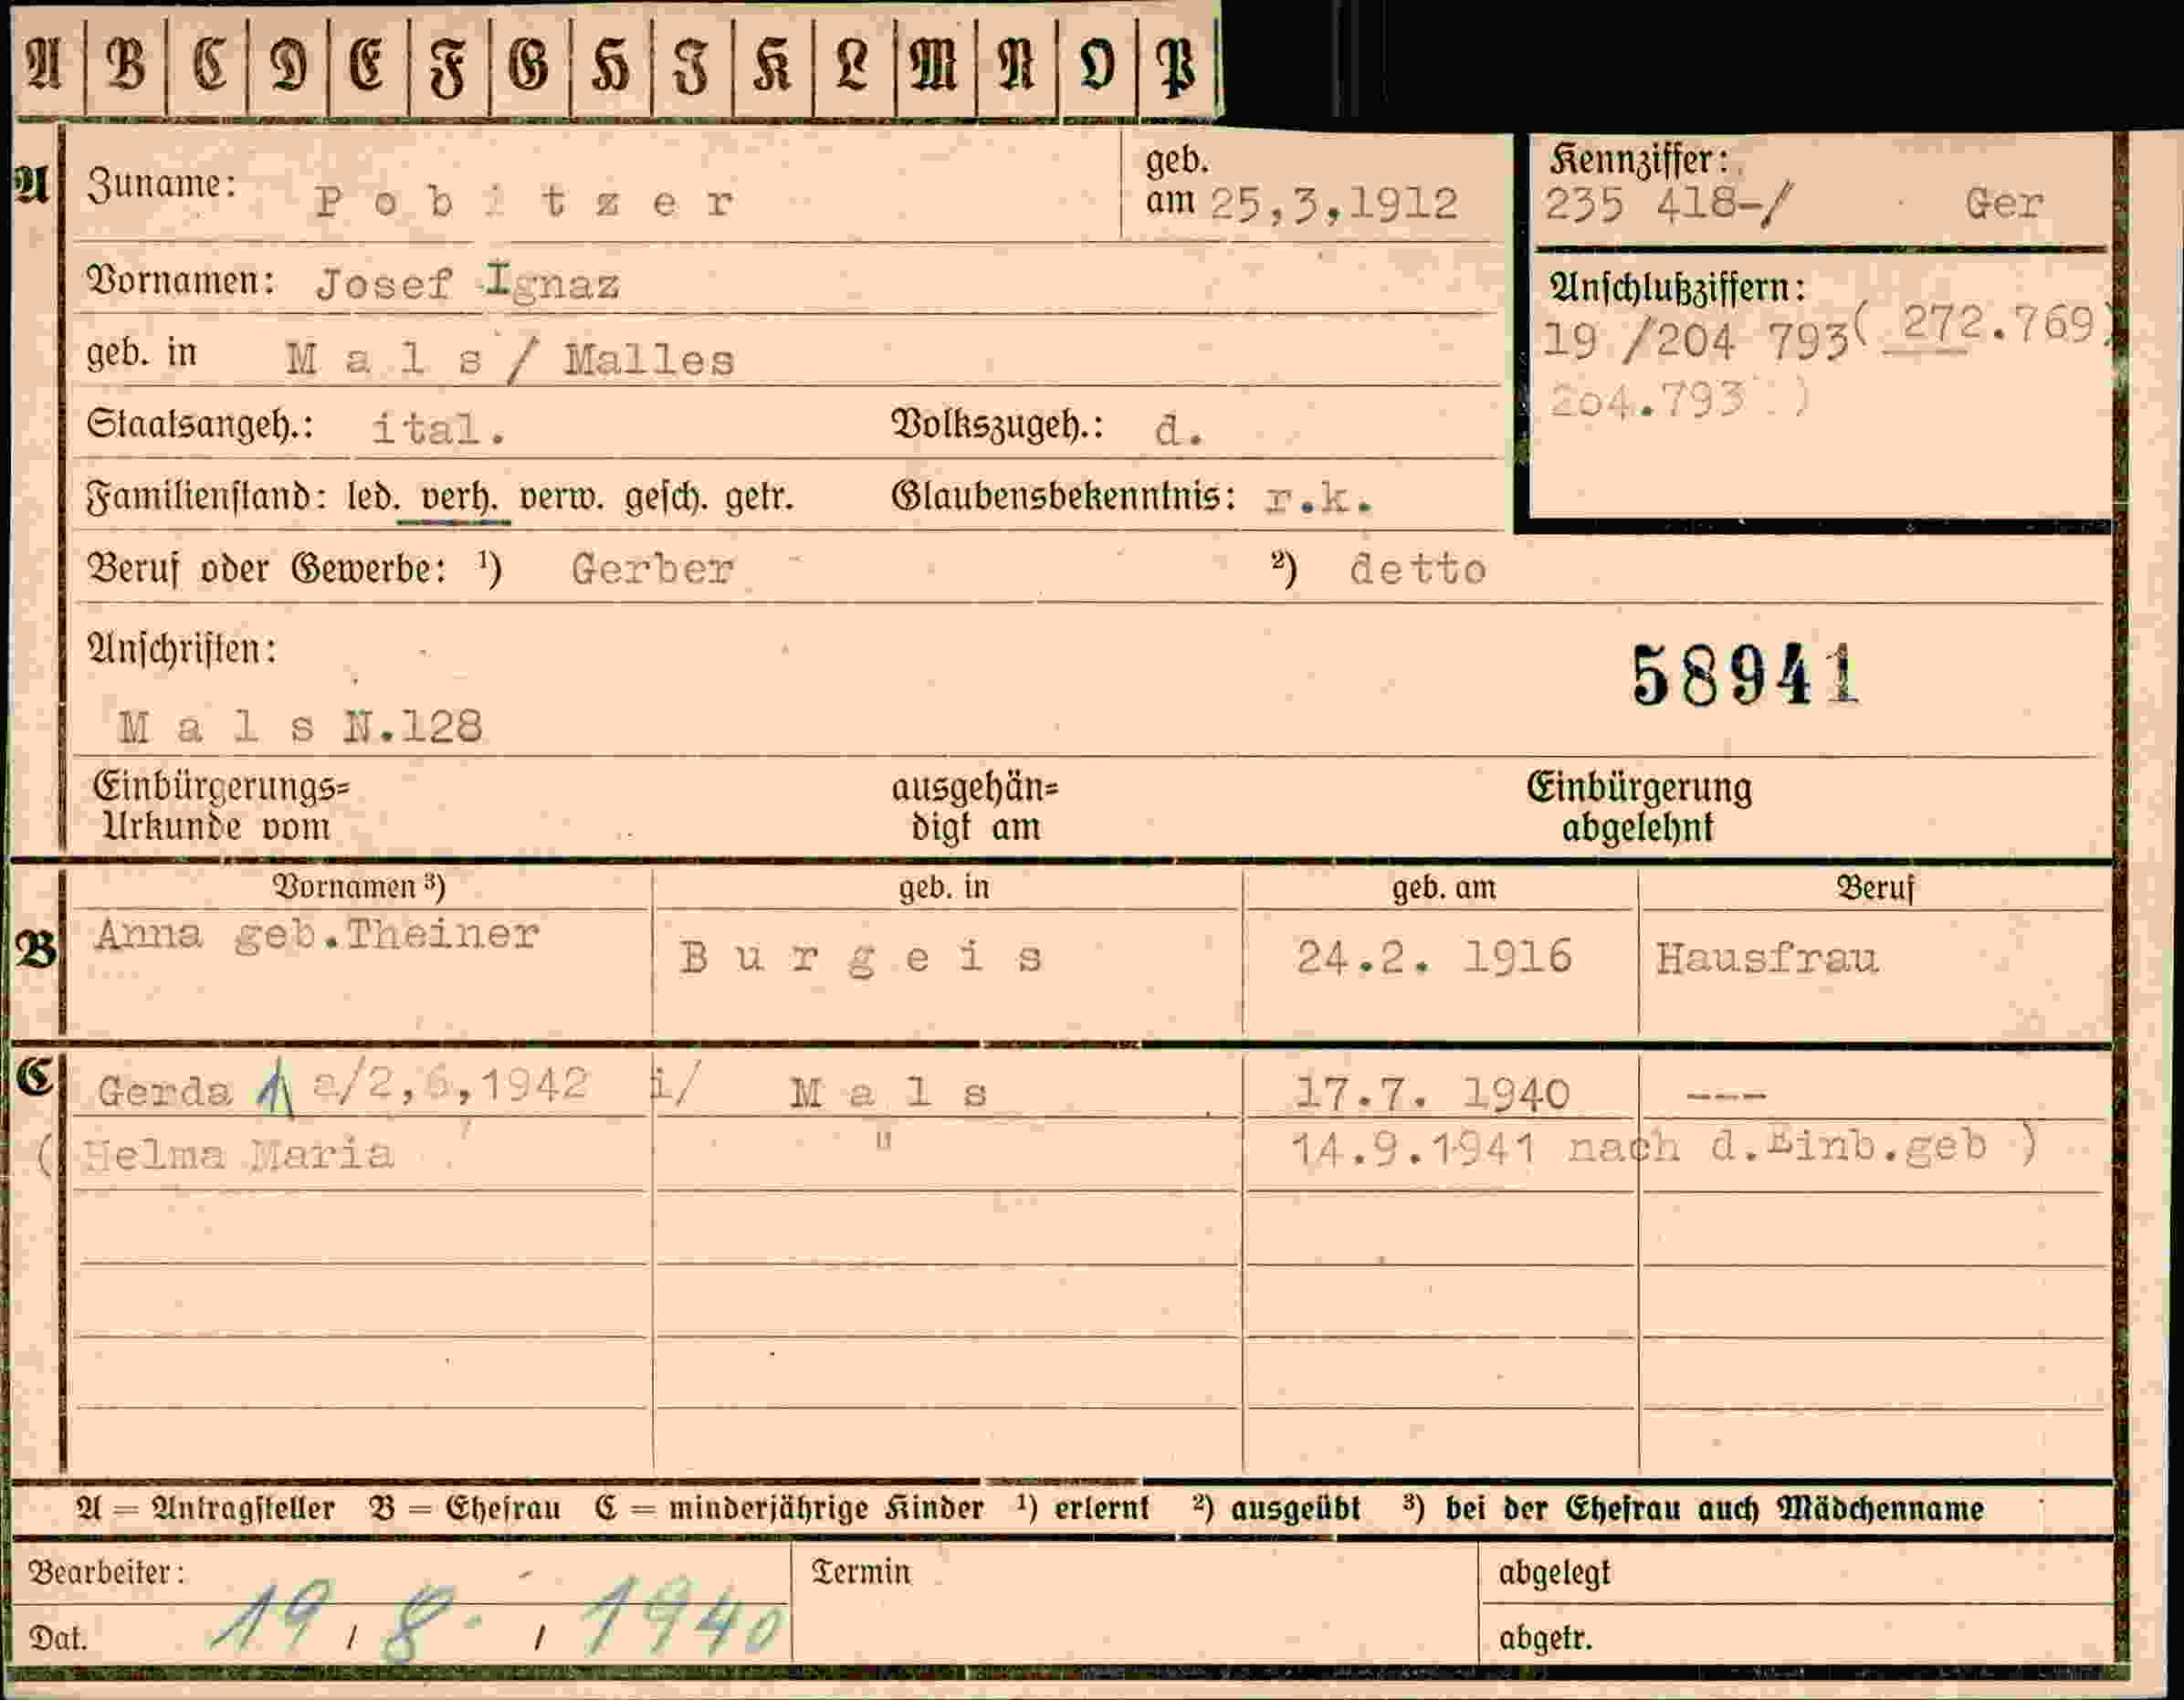 A B C D E F G H I K L M N O P
A Zuname: Pobitzer geb. am 25,3,1912
Kennziffer:
235 418-/ Ger
Vornamen: Josef Ignaz
Anschlußziffern:
19 /204 793( 272.769)
204.793 )
geb. in Mals/ Malles
Staatsangeh.: ital. Volkszugeh.: d.
Familienstand: led. verh. verw. gesch. getr. Glaubensbekenntnis: r.k.
Beruf oder Gewerbe: ¹) Gerber ²) detto
Anschriften:
58941
Mals N.128
Einbürgerungs= ausgehän= Einbürgerung
Urkunde vom digt am abgelehnt
Vornamen ³) geb. in geb. am Beruf
B Anna geb.Theiner Burgeis 24.2. 1916 Hausfrau
C Gerda a/2,6,1942 i/ Mals 17.7. 1940 ---
( Helma Maria " 14.9.1941 nach d.Einb.geb )
A = Antragsteller B = Ehefrau C = minderjährige Kinder ¹) erlernt ²) ausgeübt ³) bei der Ehefrau auch Mädchenname
Bearbeiter: Termin abgelegt
Dat. 19 / 8. / 1940 abgetr.